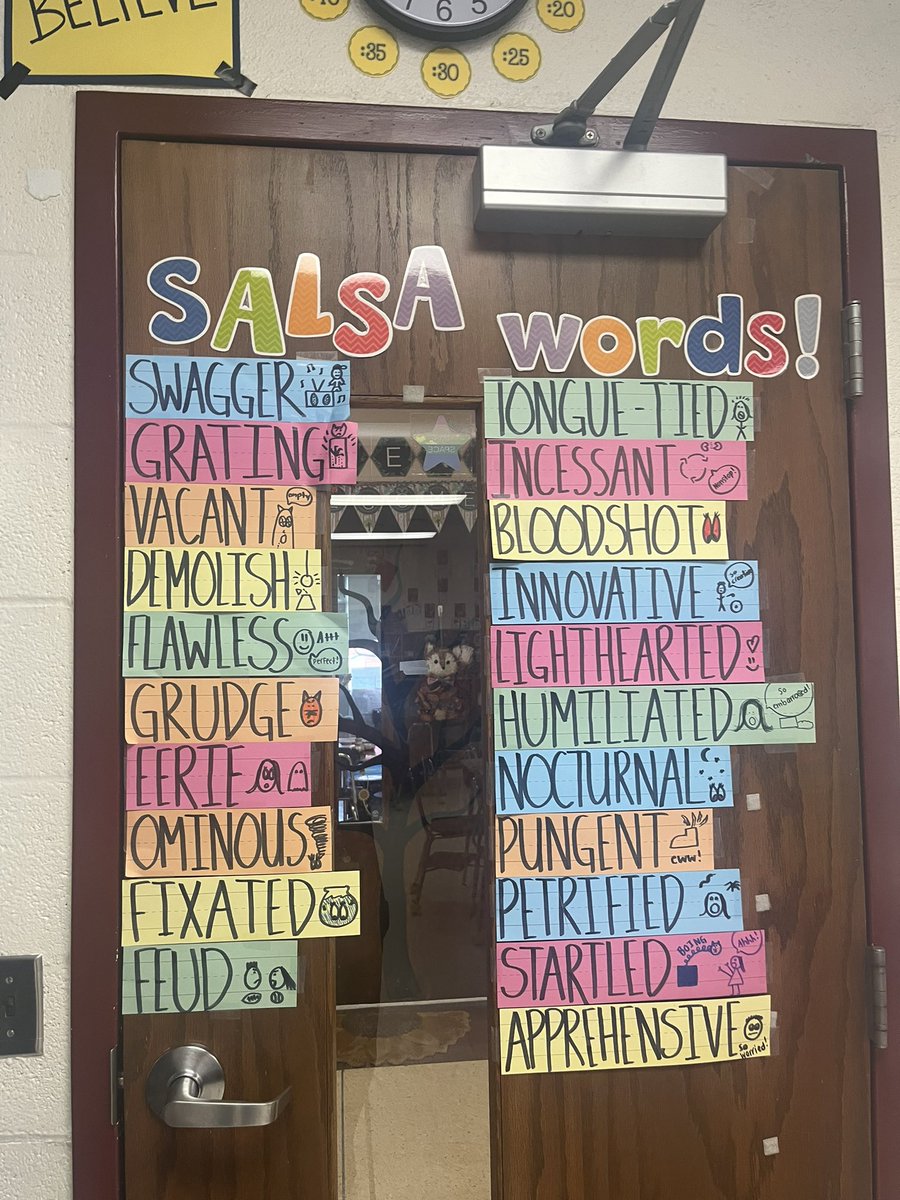 BELIEVE
7 6 5
:35
:30
:25
:20
SALSA words!
SWAGGER
GRATING
VACANT empty
DEMOLISH
FLAWLESS A+++ Perfect!
GRUDGE
EERIE
OMINOUS
FIXATED
FEUD
E
SPACE
TONGUE-TIED
INCESSANT Nonstop!
BLOODSHOT
INNOVATIVE so creative!
LIGHTHEARTED
HUMILIATED so embarrassed!
NOCTURNAL
PUNGENT eww!
PETRIFIED
STARTLED BOING Ahhh!
APPREHENSIVE so worried!